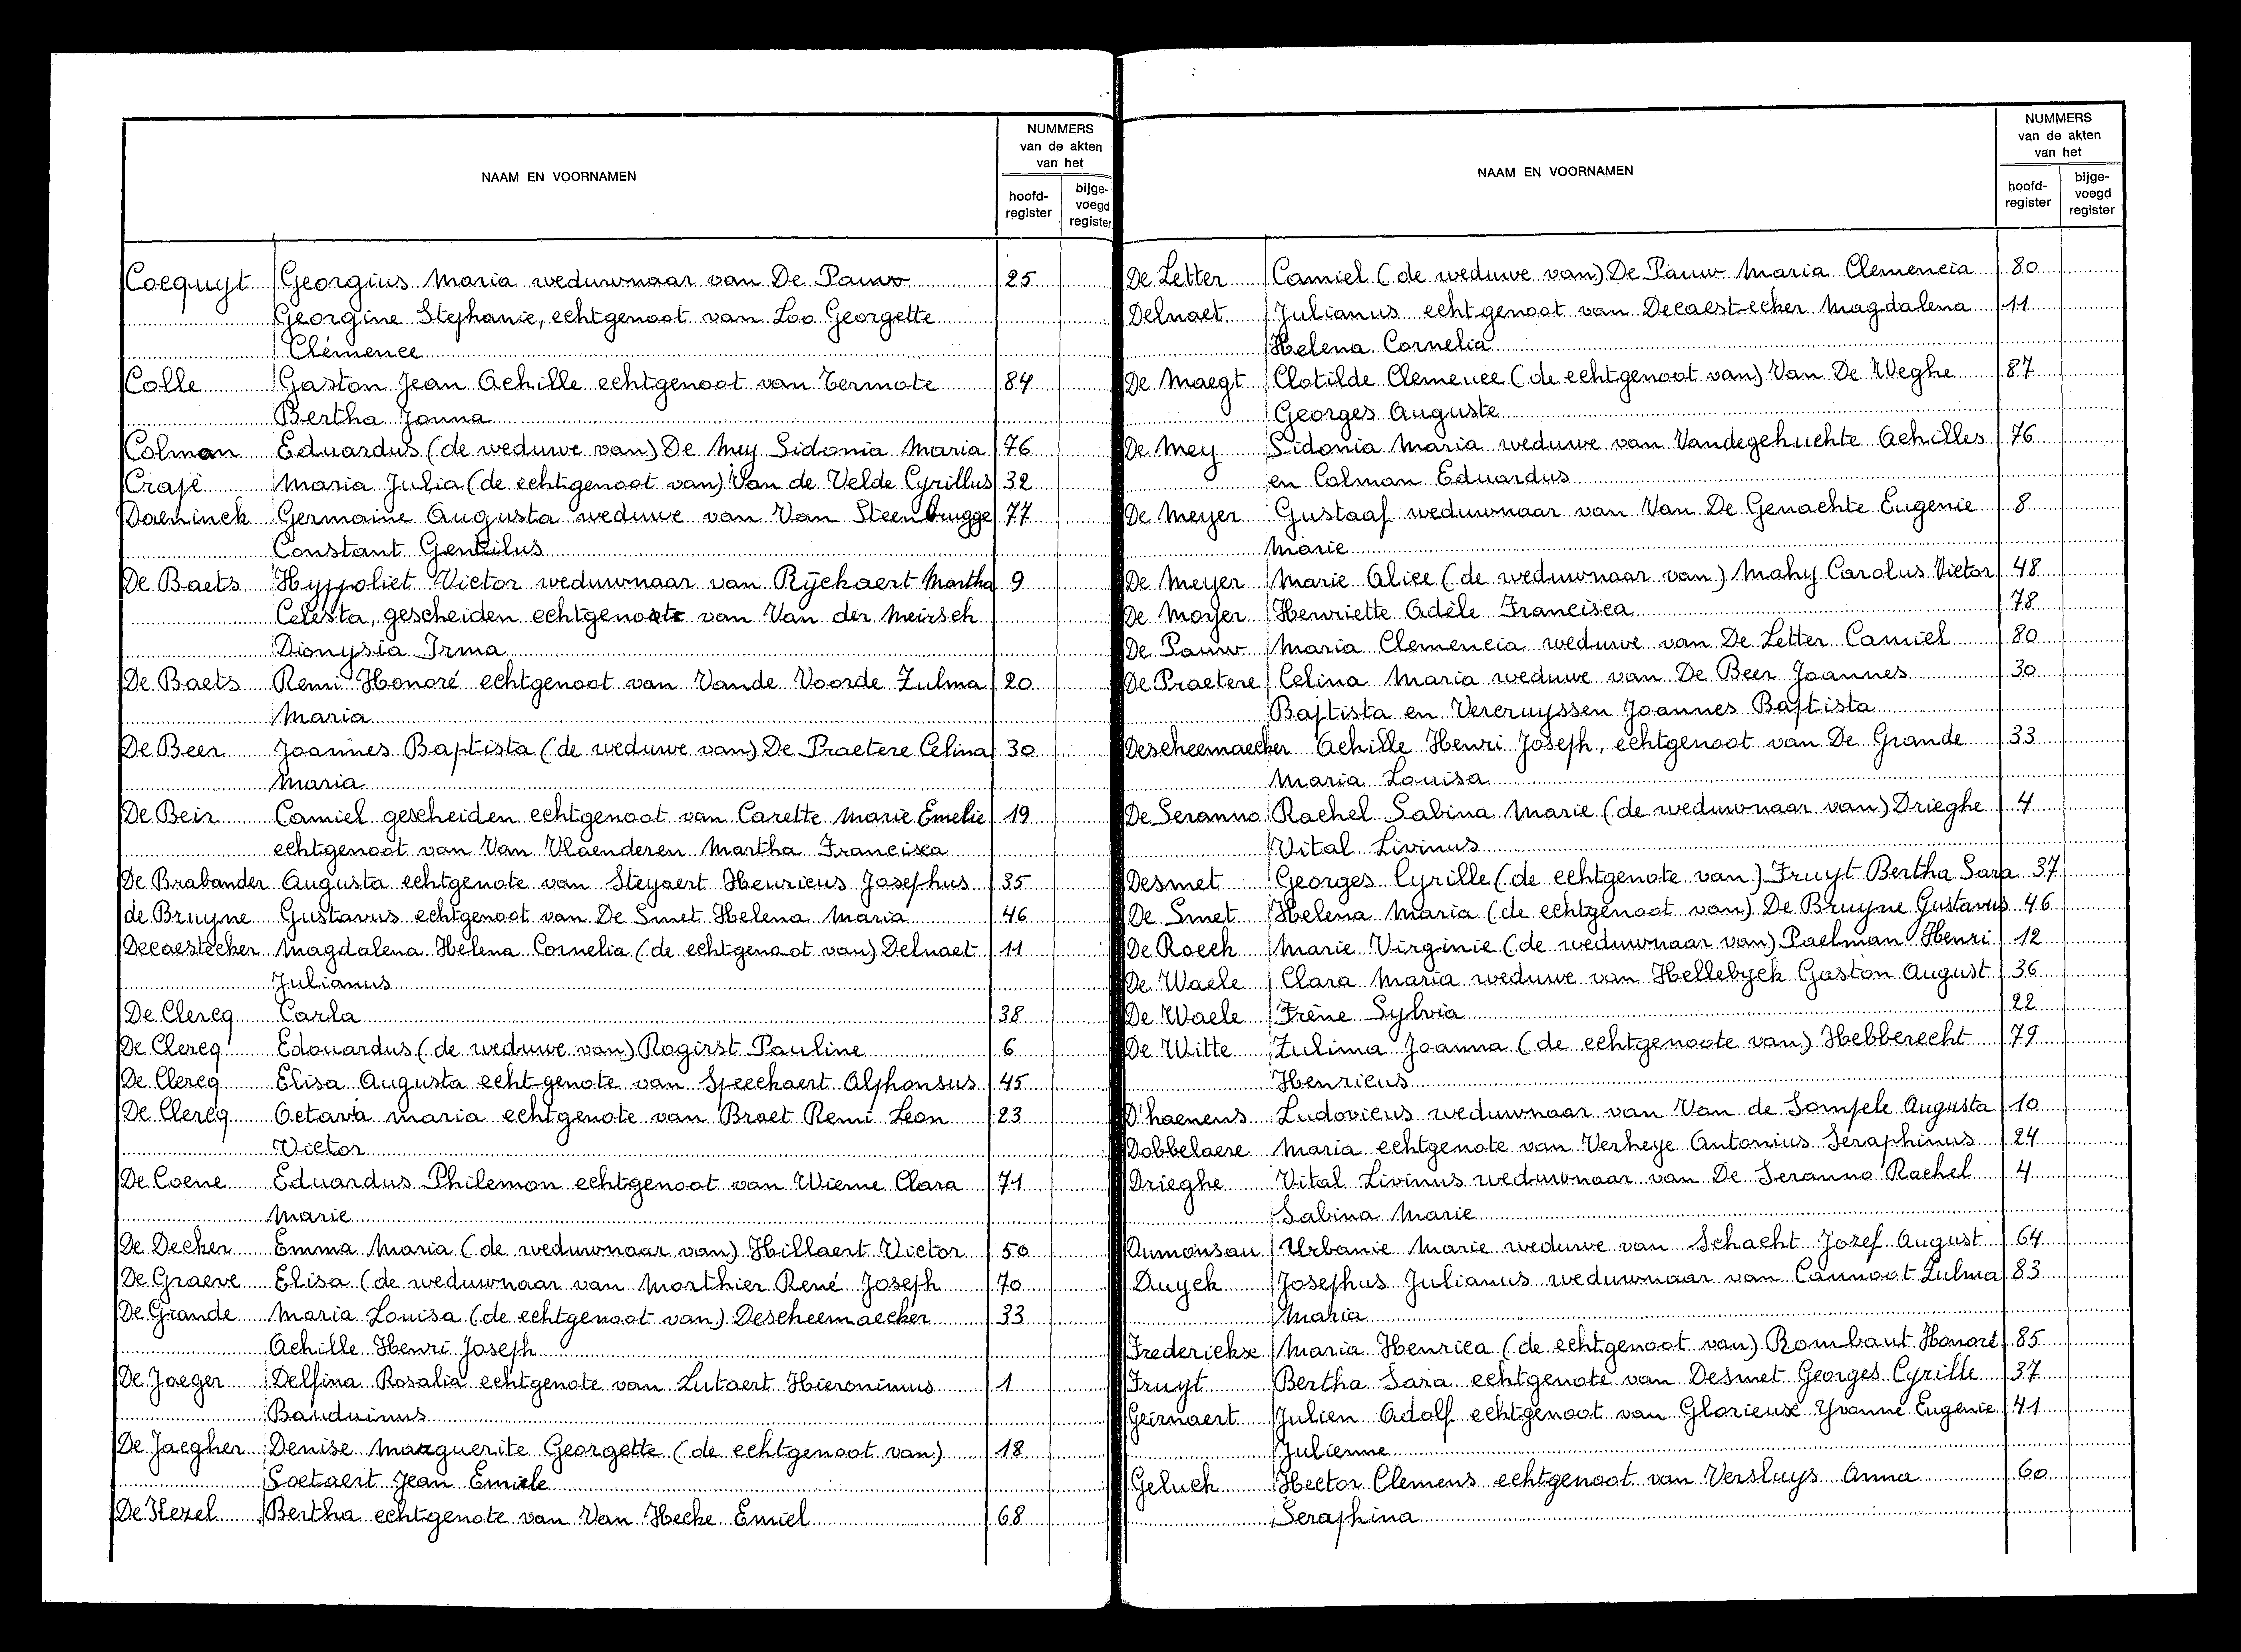 NAAM EN VOORNAMEN
NUMMERS
van de akten
van het
hoofd-
register
bijge-
voegd
register
Coequyt Georgius Maria weduwnaar van De Pauw 25
Georgine Stephanie, echtgenoot van Loo Georgette
Clémence
Colle Gaston Jean Achille echtgenoot van Termote 84
Bertha Joanna
Colman Eduardus (de weduwe van) De Mey Sidonia Maria 76
Crajé Maria Julia (de echtgenoot van) Van de Velde Cyrillus 32
Daeninck Germaine Augusta weduwe van Van Steenbrugge 77
Constant Gentilus
De Baets Hyppoliet Victor weduwnaar van Rÿckaert Martha 9
Celesta, gescheiden echtgenoote van Van der Meirsch
Dionysia Irma
De Baets Remi Honoré echtgenoot van Vande Voorde Zulma 20
Maria
De Beer Joannes Baptista (de weduwe van) De Praetere Celina 30
Maria
De Beir Camiel gescheiden echtgenoot van Carette Marie Emelie 19
echtgenoot van Van Vlaenderen Martha Francisca
De Brabander Augusta echtgenote van Steyaert Henricus Josephus 35
de Bruyne Gustavus echtgenoot van De Smet Helena Maria 46
Decaestecker Magdalena Helena Cornelia (de echtgenoot van) Delnaet 11
Julianus
De Clercq Carla 38
De Clercq Edouardus (de weduwe van) Rogirst Pauline 6
De Clercq Elisa Augusta echtgenote van Speeckaert Alphonsus 45
De Clercq Octava maria echtgenote van Braet Remi Leon 23
Victor
De Coene Eduardus Philemon echtgenoot van Wierne Clara 71
Marie
De Decker Emma Maria (de weduwnaar van) Hillaert Victor 50
De Graeve Elisa (de weduwnaar van Morthier René Joseph 70
De Grande Maria Louisa (de echtgenoot van) Descheemaecker 33
Achille Henri Joseph
De Jaeger Delfina Rosalia echtgenote van Lutaert Hieronimus 1
Bauduinus
De Jaegher Denise Marguerite Georgette (de echtgenoot van) 18
Soetaert Jean Emiele
De Kezel Bertha echtgenote van Van Hecke Emiel 68
NAAM EN VOORNAMEN
NUMMERS
van de akten
van het
hoofd-
register
bijge-
voegd
register
De Letter Camiel (de weduwe van) De Pauw Maria Clemencia 80
Delnaet Julianus echtgenoot van Decaestecker Magdalena 11
Helena Cornelia
De Maegt Clotilde Clemence (de echtgenoot van) Van De Weghe 87
Georges Auguste
De Mey Sidonia Maria weduwe van Vandegehuchte Achilles 76
en Colman Eduardus
De Meyer Gustaaf weduwnaar van Van De Genachte Eugenie 8
Marie
De Meyer Marie Alice (de weduwnaar van) Mahy Carolus Victor 48
De Moyer Henriette Adèle Francisca 78
De Pauw Maria Clemencia weduwe van De Letter Camiel 80
De Praetere Celina Maria weduwe van De Beer Joannes 30
Baptista en Vercruyssen Joannes Baptista
Descheemaecker Achille Henri Joseph, echtgenoot van De Grande 33
Maria Louisa
De Seranno Rachel Sabina Marie (de weduwnaar van) Drieghe 4
Vital Livinus
Desmet Georges Cyrille (de echtgenote van) Fruyt Bertha Sara 37
De Smet Helena Maria (de echtgenoot van) De Bruyne Gustavus 46
De Roeck Marie Virginie (de weduwnaar van) Paelman Henri 12
De Waele Clara Maria weduwe van Hellebyck Gaston August 36
De Waele Irène Sylvia 22
De Witte Zulima Joanna (de echtgenoote van) Hebberecht 79
Henricus
D'haenens Ludovicus weduwnaar van Van de Sompele Augusta 10
Dobbelaere Maria echtgenote van Verheye Antonius Seraphinus 24
Drieghe Vital Livinus weduwnaar van De Seranno Rachel 4
Sabina Marie
Dumonsau Urbanie Marie weduwe van Schacht Jozef August 64
Duyck Josephus Julianus weduwnaar van Cannoot Zulma 83
Maria
Fredericksx Maria Henrica (de echtgenoot van) Rombaut Honoré 85
Fruyt Bertha Sara echtgenote van Desmet Georges Cyrille 37
Geirnaert Julien Adolf echtgenoot van Glorieuse Yvonne Eugenie 41
Julienne
Geluck Hector Clemens echtgenoot van Versluys Anna 60
Seraphina